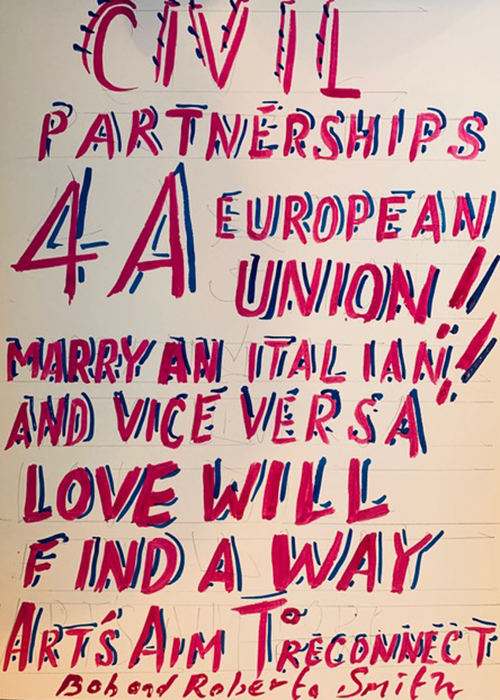 CIVIL
PARTNERSHIPS
4A EUROPEAN
UNION!!
MARRY AN ITALIAN!!
AND VICE VERSA
LOVE WILL
FIND A WAY
ART'S AIM To RECONNECT
Bob and Roberta Smith